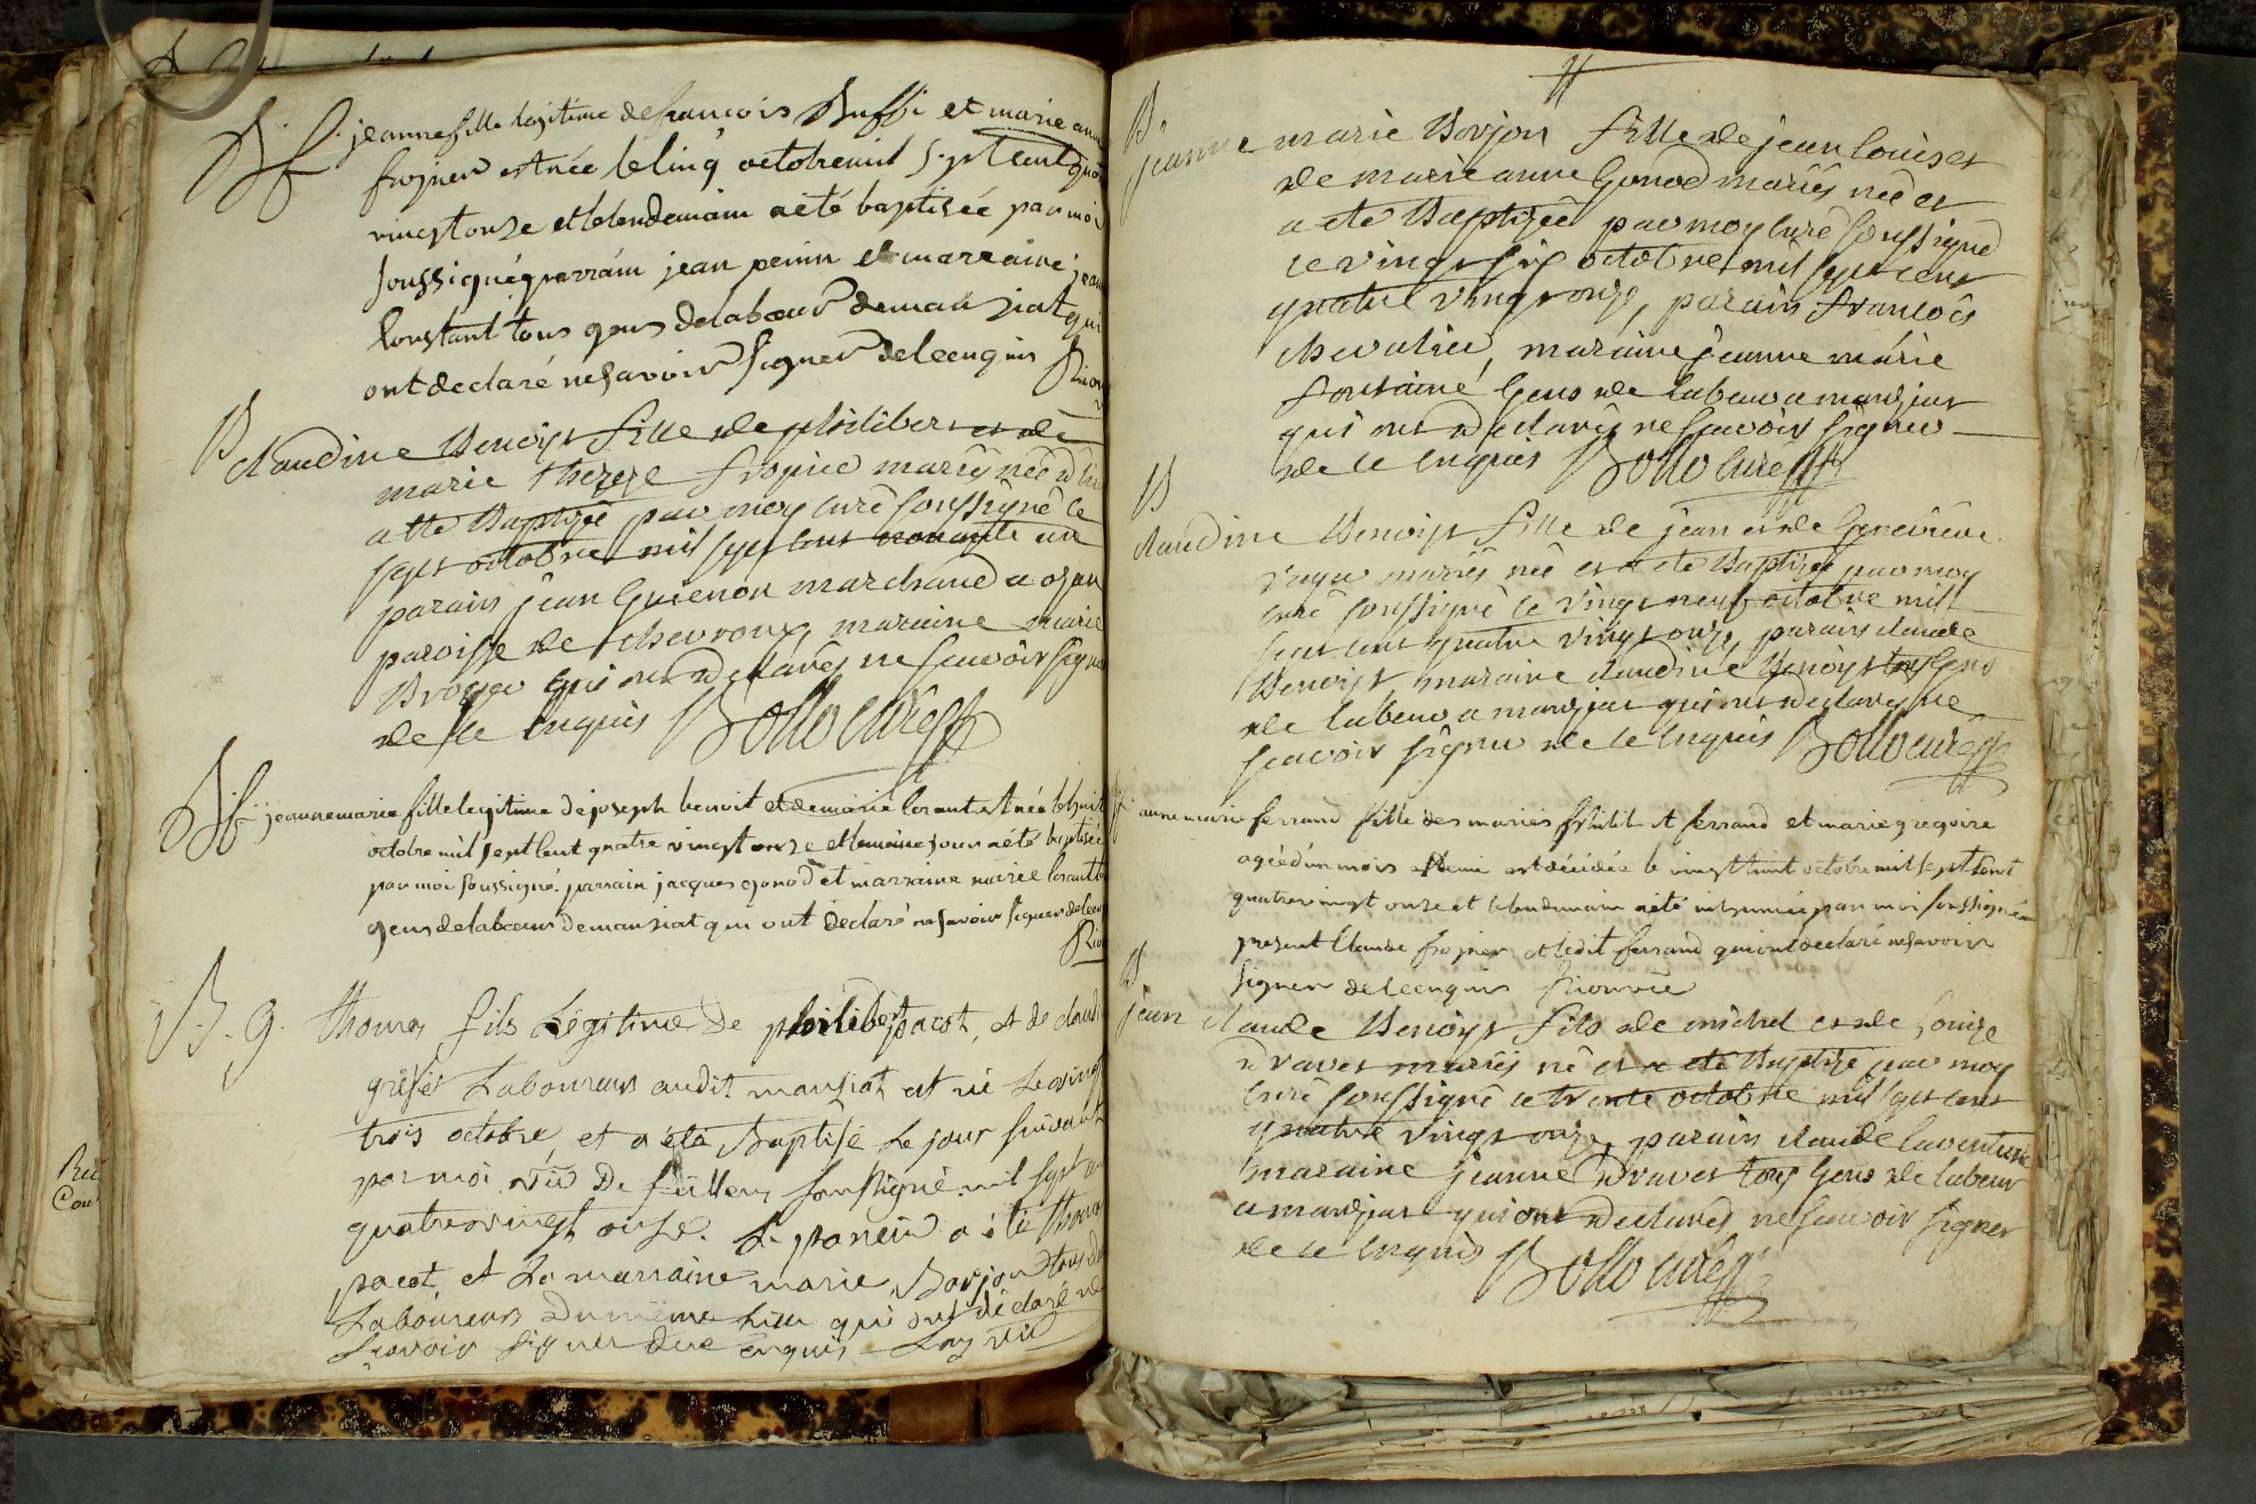 B. f. jeanne fille legitime de francois Buffi et marie anne
frojner est née le cinq octobre mil sept cent
vingt onze et le lendemain a été baptisée par moi
soussigné parrain jean et marraine
Constant tous gens de labeur de manziat qui
ont declaré ne savoir signer de ce enquis
B
claudine Benoist fille de philibert et de
marie thereze mariés née
a ete Baptizée par moy curé soussigné le
sept octobre mil sept cent nonante un
parain jean Guienon marchand a ozan
paroisse de chevroux, maraine marie
Broyer qui ont declarés ne scavoir signer
de ce enquis Bollo curé
B. f. jeanne marie fille legitime de joseph benoit et de marie lorant est née le huit
octobre mil sept cent quatre vingt onze et le même jour a été baptisée
par moi soussigné. parrain jacques gonod et marraine marie
gens de labeur de manziat qui ont déclaré ne savoir signer de ce
B. g. thomas fils Légitime de philibert pacot, et de
Laboureurs audit manziat est né Le vingt
trois octobre et a été Baptisé Le jour suivant
par moi soussigné mil sept
quatrevingt onze. Le parein a été thomas
pacot et La marraine marie Borjon tous
Laboureurs du même Lieu qui ont déclaré ne
scavoir signer de ce enquis
B
jeanne marie Borjon fille de jean louis et
de marie anne Gonod mariés née et
a ete Baptizée par moy curé soussigné
le vingt six octobre mil sept cent
quatre vingt onze, parain francois
chevalier, maraine jeanne marie
fontaine Gens de labeur a manzjat
qui ont declarés ne scavoir signer
de ce enquis Bollo curé
B
claudine Benoist fille de jean et de Genevieve
mariés née et a ete Baptizée par moy
curé soussigné le vingt neuf octobre mil
sept cent quatre vingt onze, parain claude
Benoist, maraine claudine Benoist tous Gens
de labeur a manzjat qui ont declarés ne
scavoir signer de ce enquis Bollo curé
anne marie ferrand fille des mariés philibt ferrand et marie gregoire
agée d'un mois et demi est décédée le vingt huit octobre mil sept cent
quatre vingt onze et le lendemain a été inhumée par moi soussigné
present Claude frojner et ledit ferrand qui ont declaré ne savoir
signer de ce enquis
B
jean claude Benoist fils de michel et de Louize
dravet mariés né et a ete Baptizé par moy
curé soussigné le trente octobre mil sept cent
quatre vingt onze, parain claude laventure
maraine jeanne dravet tous Gens de labeur
a manzjat qui ont declarés ne scavoir signer
de ce enquis Bollo curé